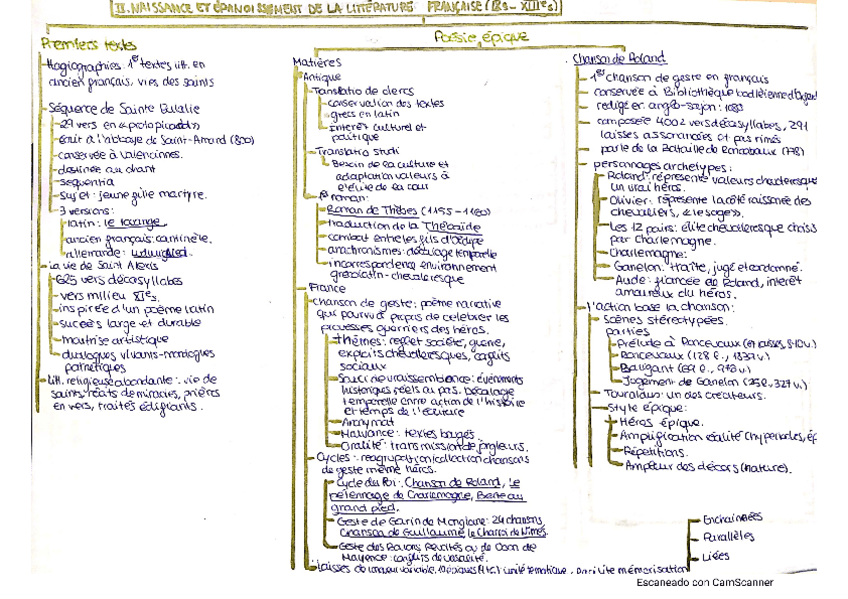 II. NAISSANCE ET ÉPANOUISSEMENT DE LA LITTÉRATURE FRANÇAISE (IXs - XIIIes)
Premiers textes
Hagiographies: 1er textes litt. en
ancien français, vies des saints
Séquence de Sainte Eulalie
29 vers en
écrit à l'abbaye de Saint-Amand
conservée à Valenciennes.
destinée au chant
sequentia
sujet: jeune fille martyre.
3 versions:
latin: le
ancien français: cantilène.
allemande:
La vie de Saint Alexis
625 vers décasyllabes
vers milieu XIes.
inspirée d'un poème latin
succès large et durable
maîtrise artistique
dialogues vivants-monologues
pathétiques
Litt. religieuse abondante: vie de
saints, récits de miracles, prières
en vers, traités édifiants.
Poésie épique
Matières
Antique
Translatio de clercs
conservation des textes
grecs en latin
Intérêt culturel et
politique
Translatio studi
Besoin de la culture et
adaptation valeurs à
élite de la cour
1er roman:
Roman de Thèbes
traduction de la Thébaïde
combat entre les fils d'Oedipe
anachronismes: décalage temporelle
incorrespondence environnement
-chevaleresque
France
chanson de geste: poème narrative
que pour propos de celebrer les
prouesses guerriers des héros.
thèmes: reflet société, guerre,
exploits chevaleresques, conflits
sociaux
Souci vraissemblance: événements
historiques réels au pas. Décalage
temporelle entre action de l'histoire
et temps de l'écriture
Anonymat
: textes
Oralité: transmission de jongleurs.
Cycles: regroupation/collection chansons
de geste même héros.
Cycle du Roi: Chanson de Roland, Le
pèlerinage de Charlemagne, Berte au
grand pied.
Geste de Garin de Monglane: 24 chansons
Chanson de Guillaume, le Charroi de Nîmes.
Geste des Barons Révoltés ou de Doon de
Mayence: conflits de vassalité.
Laisses de longueur variable, unité tématique, facilite mémorisation
Enchaînées
Parallèles
Liées
Chanson de Roland
1er chanson de geste en français
conservée à Bibliothèque bodléienne d'
redigé en anglo-
composée 4002 vers décasyllabes, 291
laisses assonancées et pas rimés
parle de la Bataille de Roncevaux (778)
personnages archetypes:
Roland: réprésente valeurs
un vrai héros.
Olivier: réprésente la côté raisonnée des
chevaliers, «le sage».
Les 12 pairs: élite chevaleresque
par Charlemagne.
Charlemagne:
Ganelon: traître, jugé et condamné.
Aude: fiancée de Roland, intérêt
amoureux du héros.
l'action base la chanson:
Scènes stéréotypées.
parties
Prélude à Roncevaux
Roncevaux
Baligant
Jugement de Ganelon
Turoldus: un des créateurs.
Style épique:
Héros épique.
Amplification réalité
Répétitions.
Ampleur des décors (nature).
Escaneado con CamScanner